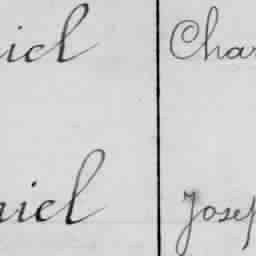 iel Char
niel Josep